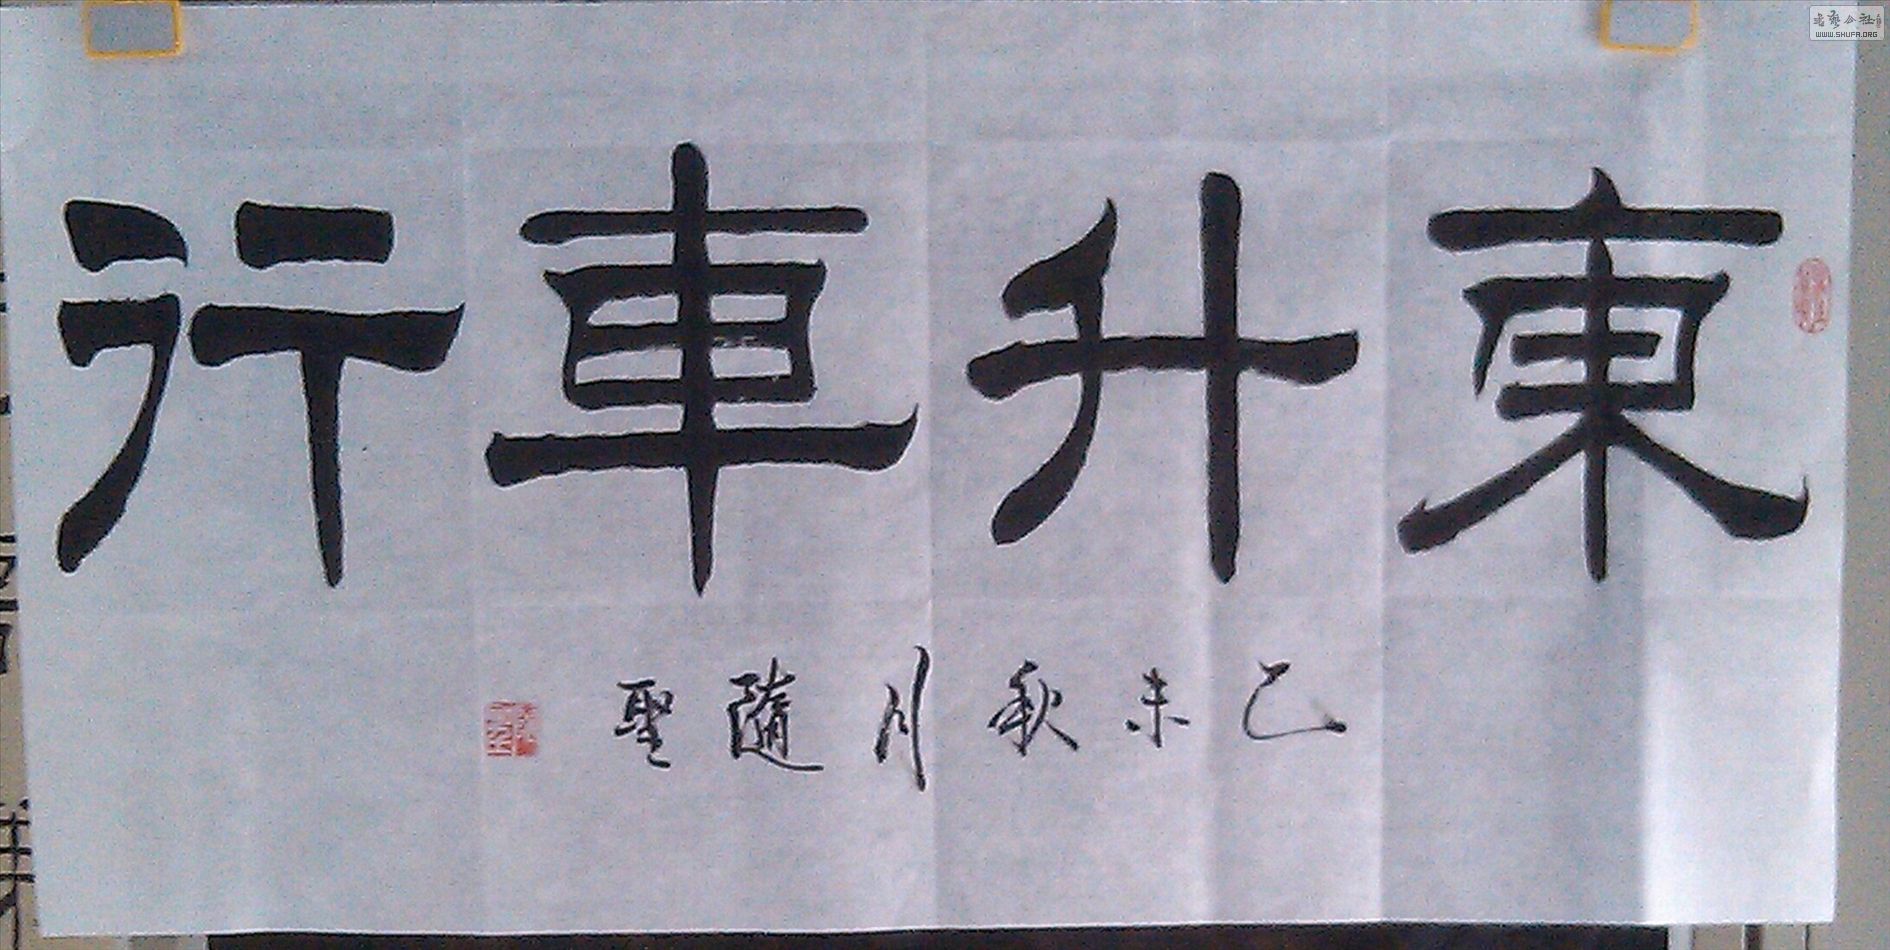 東升車行
己未秋月隨聖
WWW.SHUFA.ORG